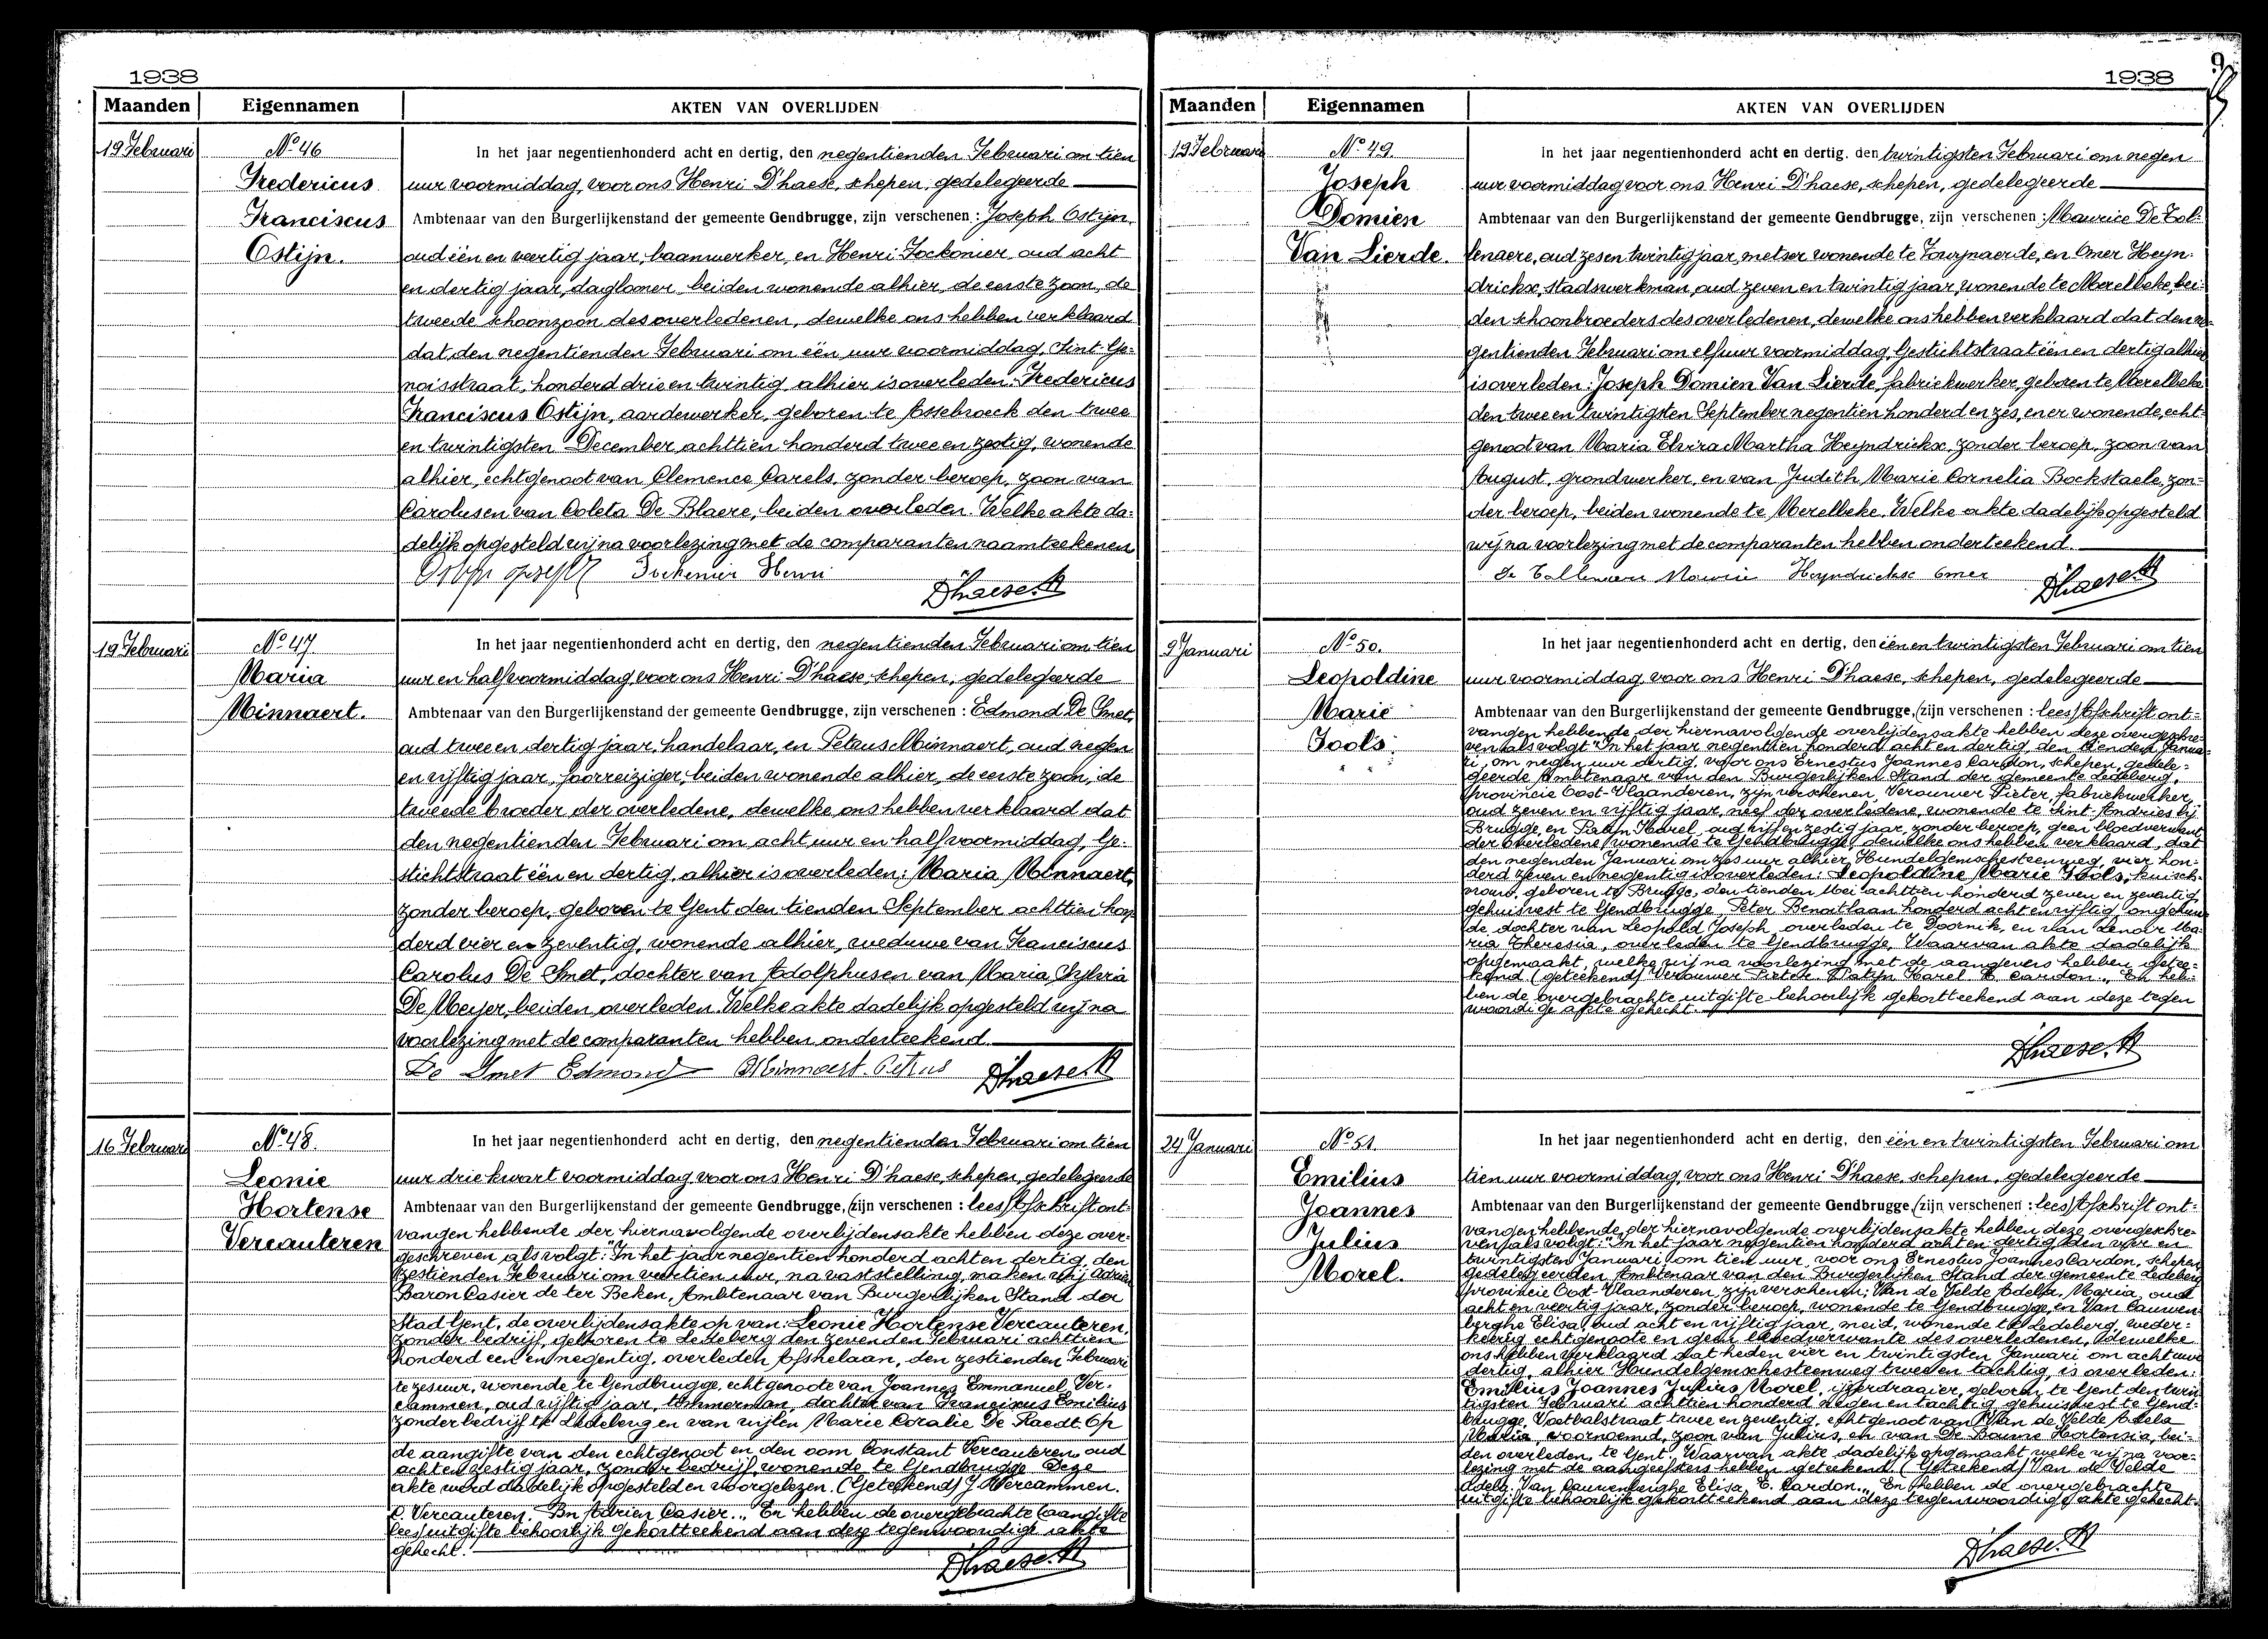 1938
Maanden
Eigennamen
AKTEN VAN OVERLIJDEN
19 Februari
Nº 46
Fredericus
Franciscus
Ostijn.
In het jaar negentienhonderd acht en dertig, den negentienden Februari om tien
uur voormiddag, voor ons Henri D'haese, schepen, gedelegeerde
Ambtenaar van den Burgerlijkenstand der gemeente Gendbrugge, zijn verschenen : Joseph Ostijn,
oud één en veertig jaar, baanwerker, en Henri Fockenier, oud acht
en dertig jaar, daglooner, beiden wonende alhier, de eerste zoon, de
tweede schoonzoon des overledenen, dewelke ons hebben verklaard
dat den negentienden Februari om één uur voormiddag, Sint-Ge-
noisstraat, honderd drie en twintig, alhier is overleden: Fredericus
Franciscus Ostijn, aardewerker, geboren te Assebroeck den twee
en twintigsten December achttien honderd twee en zestig, wonende
alhier, echtgenoot van Clemence Carels, zonder beroep, zoon van
Carolus en van Coleta De Blaere, beiden overleden. Welke akte da-
delijk opgesteld wij na voorlezing met de comparanten naamteekenen
Fockenier Henri
D'haese H
19 Februari
Nº 47
Maria
Minnaert.
In het jaar negentienhonderd acht en dertig, den negentienden Februari om tien
uur en half voormiddag, voor ons Henri D'haese, schepen, gedelegeerde
Ambtenaar van den Burgerlijkenstand der gemeente Gendbrugge, zijn verschenen : Edmond De Smet,
oud twee en dertig jaar, handelaar, en Petrus Minnaert, oud negen
en vijftig jaar, foorreiziger, beiden wonende alhier, de eerste zoon, de
tweede broeder der overledene, dewelke ons hebben verklaard dat
den negentienden Februari om acht uur en half voormiddag, Ge-
stichtstraat één en dertig, alhier is overleden: Maria Minnaert,
zonder beroep, geboren te Gent den tienden September achttien hon
derd vier en zeventig, wonende alhier, weduwe van Franciscus
Carolus De Smet, dochter van Adolphus en van Maria
De Meijer, beiden overleden. Welke akte dadelijk opgesteld wij na
voorlezing met de comparanten hebben onderteekend.
De Smet Edmond Minnaert Petrus D'haese H
16 Februari
Nº 48.
Leonie
Hortense
Vercauteren
In het jaar negentienhonderd acht en dertig, den negentienden Februari om tien
uur drie kwart voormiddag voor ons Henri D'haese, schepen, gedelegeerde
Ambtenaar van den Burgerlijkenstand der gemeente Gendbrugge, (zijn verschenen : lees) Afschrift ont-
vangen hebbende der hiernavolgende overlijdensakte hebben deze over-
geschreven als volgt: "In het jaar negentien honderd acht en dertig, den
zestienden Februari om veertien uur, na vaststelling, maken wij Adrien
Baron Casier de ter Beken, Ambtenaar van Burgerlijken Stand der
Stad Gent, de overlijdensakte op van: Leonie Hortense Vercauteren,
zonder bedrijf, geboren te Ledeberg den zevenden Februari achttien
honderd een en negentig, overleden Afsnelaan, den zestienden Februari
te zes uur, wonende te Gendbrugge, echtgenoote van Joannes Emmanuel Ver-
cammen, oud vijftig jaar, timmerman, dochter van Franciscus Emilius
zonder bedrijf te Ledeberg en van wijlen Marie Coralie De Raedt. Op
de aangifte van den echtgenoot en den oom Constant Vercauteren oud
acht en zestig jaar, zonder bedrijf, wonende te Gendbrugge. Deze
akte werd dadelijk opgesteld en voorgelezen. (Geteekend) J. Vercammen.
C. Vercauteren. Bn Adrien Casier.„ En hebben de overgebrachte (aangifte
lees) uitgifte behoorlijk gekortteekend aan deze tegenwoordige akte
gehecht.
D'haese H
1938
Maanden
Eigennamen
AKTEN VAN OVERLIJDEN
19 Februari
Nº 49.
Joseph
Domien
Van Lierde.
In het jaar negentienhonderd acht en dertig. den twintigsten Februari om negen
uur voormiddag voor ons Henri D'haese, schepen, gedelegeerde
Ambtenaar van den Burgerlijkenstand der gemeente Gendbrugge, zijn verschenen : Maurice De Tol-
lenaere, oud zes en twintig jaar, metser wonende te Zwijnaerde, en Omer Heyn-
drickx, stadswerkman, oud zeven en twintig jaar, wonende te Merelbeke, bei-
den schoonbroeders des overledenen, dewelke ons hebben verklaard dat den ne-
gentienden Februari om elf uur voormiddag, Gestichtstraat één en dertig alhier
is overleden: Joseph Domien Van Lierde, fabriekwerker, geboren te Merelbeke
den twee en twintigsten September negentien honderd en zes, en er wonende, echt-
genoot van Maria Elvira Martha Heyndrickx, zonder beroep, zoon van
August, grondwerker, en van Judith Marie Cornelia Bockstaele, zon-
der beroep, beiden wonende te Merelbeke. Welke akte dadelijk opgesteld
wij na voorlezing met de comparanten hebben onderteekend.
Heyndrickx Omer D'haese H
9 Januari
Nº 50.
Leopoldine
Marie
Fools.
In het jaar negentienhonderd acht en dertig, den één en twintigsten Februari om tien
uur voormiddag, voor ons Henri D'haese, schepen, gedelegeerde
Ambtenaar van den Burgerlijkenstand der gemeente Gendbrugge, (zijn verschenen : lees) Afschrift ont-
vangen hebbende der hiernavolgende overlijdensakte hebben deze overgeschre-
ven als volgt "In het jaar negentien honderd acht en dertig, den tienden Janua-
ri, om negen uur dertig, voor ons Ernestus Joannes Cardon, schepen, gedele-
geerde Ambtenaar van den Burgerlijken Stand der gemeente Ledeberg,
provincie Oost-Vlaanderen, zijn verschenen, Verouwer Pieter, fabriekwerker,
oud zeven en vijftig jaar, neef der overledene, wonende te Sint-Andries bij
Brugge, en Patijn Karel, oud vijf en zestig jaar, zonder beroep, geen bloedverwant
der overledene, wonende te Gendbrugge, dewelke ons hebben verklaard, dat
den negenden Januari om zes uur alhier, Hundelgemschesteenweg, vier hon-
derd zeven en negentig is overleden: Leopoldine Marie Fools, kuisch-
vrouw, geboren te Brugge, den tienden Mei achttien honderd zeven en zeventig,
gehuisvest te Gendbrugge, Peter Benoitlaan honderd acht en vijftig, ongehuw-
de, dochter van Leopold Joseph, overleden te Doornik, en van Lenoir Ma-
ria Theresia, overleden te Gendbrugge. Waarvan akte dadelijk
opgemaakt, welke wij na voorlezing met de aangevers hebben getee-
kend. (geteekend) Verouwer Pieter. Patijn Karel E. Cardon.„ En heb-
ben de overgebrachte uitgifte behoorlijk gekortteekend aan deze tegen
woordige akte gehecht.
D'haese. H
24 Januari
Nº 51.
Emilius
Joannes
Julius
Morel.
In het jaar negentienhonderd acht en dertig, den één en twintigsten Februari om
tien uur voormiddag, voor ons Henri D'haese, schepen, gedelegeerde
Ambtenaar van den Burgerlijkenstand der gemeente Gendbrugge, (zijn verschenen : lees) Afschrift ont-
vangen hebbende der hiernavolgende overlijdensakte hebben deze overgeschre-
ven als volgt: "In het jaar negentien honderd acht en dertig den vier en
twintigsten Januari om tien uur, voor ons Ernestus Joannes Cardon, schepen
gedelegeerden Ambtenaar van den Burgerlijken Stand der gemeente Ledeberg
provincie Oost-Vlaanderen, zijn verschenen; Van de Velde Adela, Maria, oud
acht en veertig jaar, zonder beroep, wonende te Gendbrugge, en Van Cauwen-
berghe Elisa, oud acht en vijftig jaar, meid, wonende te Ledeberg, weder-
keerig echtgenoote en geen bloedverwante des overledenen, dewelke
ons hebben verklaard dat heden vier en twintigsten Januari om acht uur
dertig, alhier Hundelgemschesteenweg twee en tachtig, is overleden:
Emilius Joannes Julius Morel, ijzerdraaier, geboren te Gent den twin
tigsten Februari achttien honderd negen en tachtig, gehuisvest te Gend-
brugge, Voetbalstraat twee en zeventig, echtgenoot van Van de Velde Adela
Maria, voornoemd, zoon van Julius, en van De Boune Hortensia, bei-
den overleden, te Gent. Waarvan akte dadelijk opgemaakt, welke wij na voor-
lezing met de aangeefsters hebben geteekend. (Geteekend) Van de Velde
Adela. Van Cauwenberghe Elisa E. Cardon.„ En hebben de overgebrachte
uitgifte behoorlijk gekortteekend aan deze tegenwoordige akte gehecht.
D'haese H